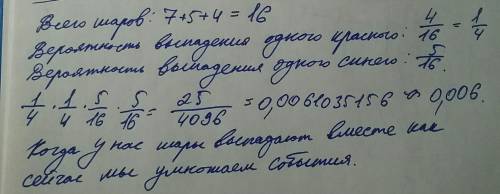 Всего шаров: 7+5+4=16
Вероятность выпадения одного красного: 4/16 = 1/4
Вероятность выпадения одного синего: 5/16.
1/4 · 1/4 · 5/16 · 5/16 = 25/4096 = 0,0061035156 ≈ 0,006.
Когда у нас шары выпадают вместе как
сейчас мы умножаем события.